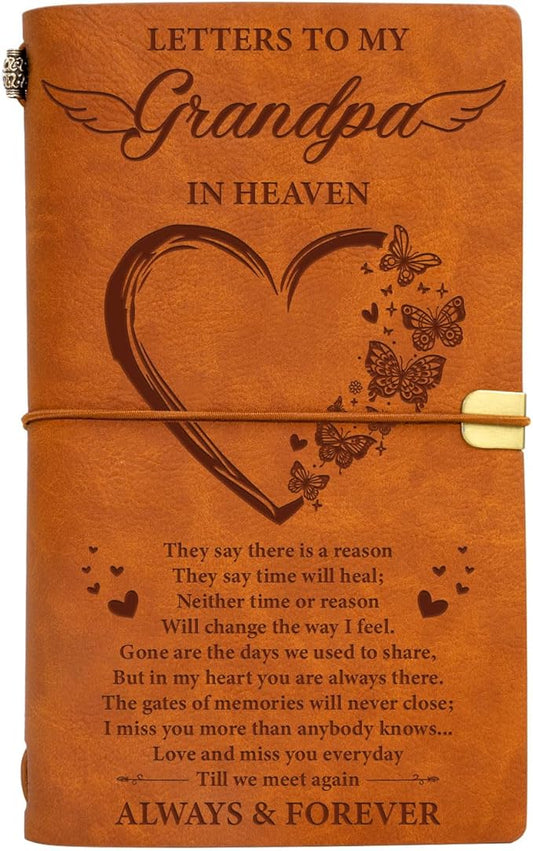 LETTERS TO MY
Grandpa
IN HEAVEN
They say there is a reason
They say time will heal;
Neither time or reason
Will change the way I feel.
Gone are the days we used to share,
But in my heart you are always there.
The gates of memories will never close;
I miss you more than anybody knows...
Love and miss you everyday
Till we meet again
ALWAYS & FOREVER